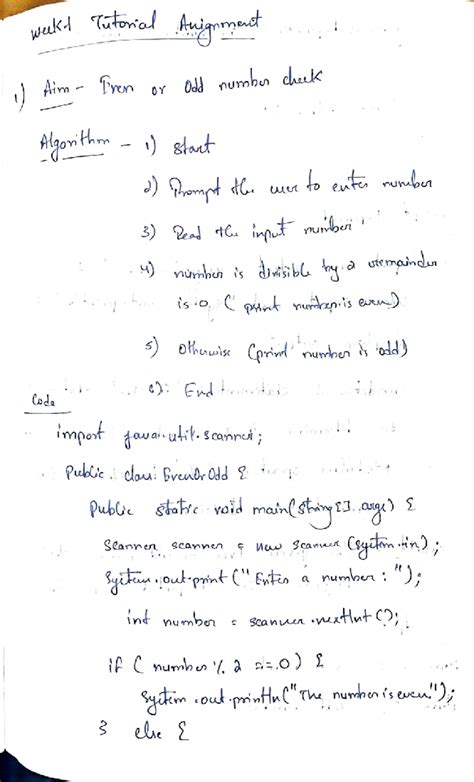 Week-1 Tutorial Assignment
1) Aim - Even or Odd number check
Algorithm - 1) Start
2) Prompt the user to enter number
3) Read the input number
4) number is divisible by 2 remainder
is 0 ( print number is even)
5) Otherwise (print number is odd)
6): End
Code
import java.util.scanner;
Public class EvenOrOdd {
Public static void main(string[] args) {
Scanner scanner = new Scanner (System.in);
System.out.print ("Enter a number : ");
int number = scanner.nextInt();
if ( number % 2 == 0) {
System.out.println("The number is even");
} else {